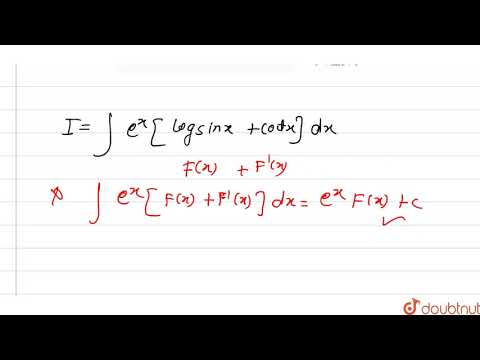 I = ∫ eˣ [ logsinx + cotx ] dx
F(x) + F'(x)
∫ eˣ [ F(x) + F'(x) ] dx = eˣ F(x) + c
doubtnut